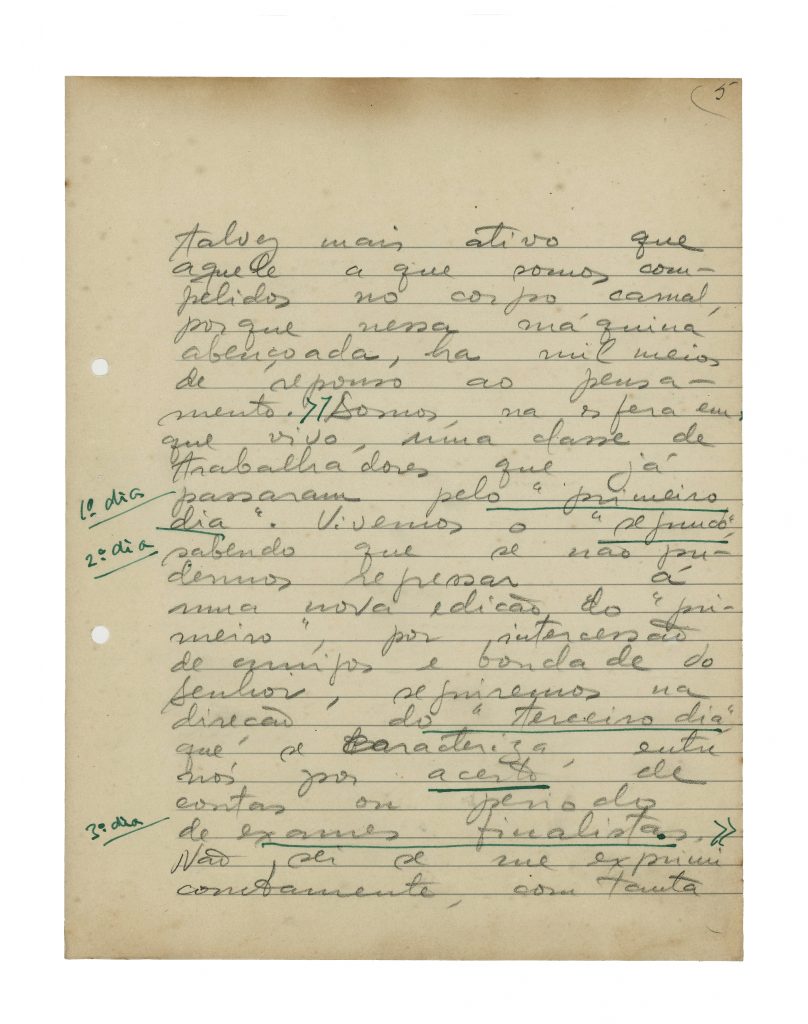 5
talvez mais ativo que
aquele a que somos com-
pelidos no corpo carnal,
porque nessa máquina
abençoada, ha mil meios
de repouso ao pensa-
mento. >> Somos, na esfera em
que vivo, uma classe de
trabalhadores que já
1º dia
passaram pelo "primeiro
dia". Vivemos o "segundo"
2º dia
sabendo que se não pu-
dermos regressar á
uma nova edição do "pri-
meiro", por intercessão
de amigos e bondade do
Senhor, seguiremos na
direcão do "terceiro dia"
que se caracteriza entre
nós por acerto de
contas ou periodo
3º dia
de exames finalistas. >>
Não sei se me exprimi
corretamente, com tanta